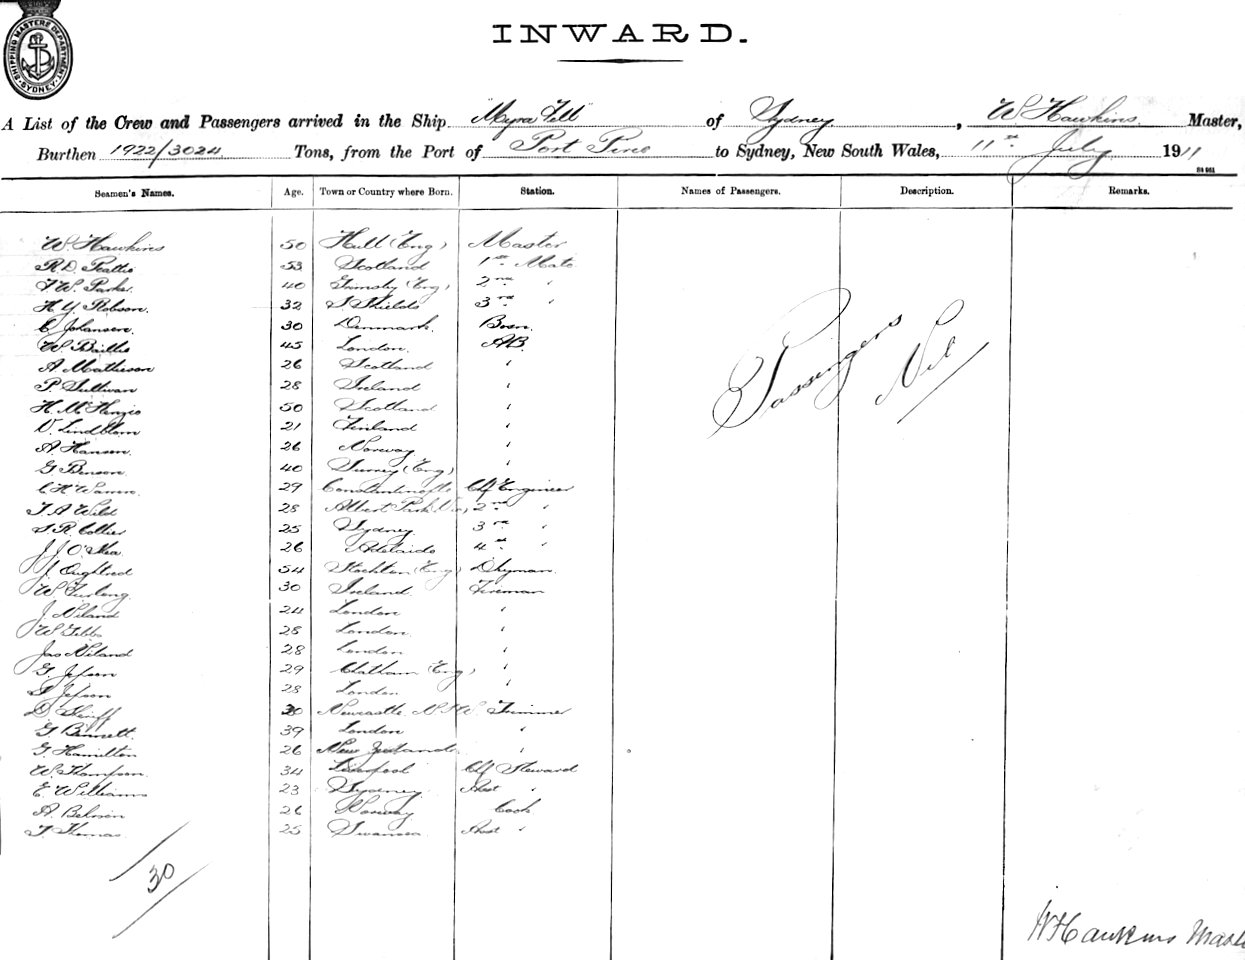 SHIPPING MASTERS DEPARTMENT SYDNEY
INWARD.
A List of the Crew and Passengers arrived in the Ship Myra Fell of Sydney, W Hawkins Master,
Burthen 1922/3024 Tons, from the Port of Port Pirie to Sydney, New South Wales, 11th July 1911
Seamen's Names. Age. Town or Country where Born. Station. Names of Passengers. Description. Remarks.
W. Hawkins 50 Hull (Eng) Master
R. D. Beattie 53 Scotland 1st Mate
W. Parker 40 Grimsby (Eng) 2nd "
H. Y. Robson 32 S. Shields 3rd "
C Johansen 30 Denmark Bosn.
W. Baillie 45 London. AB.
A Matheson 26 Scotland "
P. Sullivan 28 Ireland "
H. McKenzie 50 Scotland "
V. Lindblom 21 Finland "
A. Hansen 26 Norway "
G. Benson 40 Surrey (Eng) "
C H Warren 29 Constantinople Chf Engineer
T A Wild 28 Albert Park Vic, 2nd "
S. R. Collier 25 Sydney 3rd "
J J O'Shea 26 Adelaide 4th "
J. Oughtred 54 Stockton (Eng) Dkyman
W Furlong 30 Ireland Fireman
J. Niland 24 London "
W Gibbs 28 London "
Jas Niland 28 London "
G. Jepson 29 Chatham (Eng) "
Jepson 28 London "
D. 30 Newcastle NSW. Trimmer
G. Bennett 39 London "
G. Hamilton 26 New Zealand "
W. Thompson 34 Liverpool Chf Steward
E. Williams 23 Sydney Asst "
A. 26 Norway Cook
T. Thomas 25 Swansea Asst "
Passengers Nil
30
W Hawkins Master